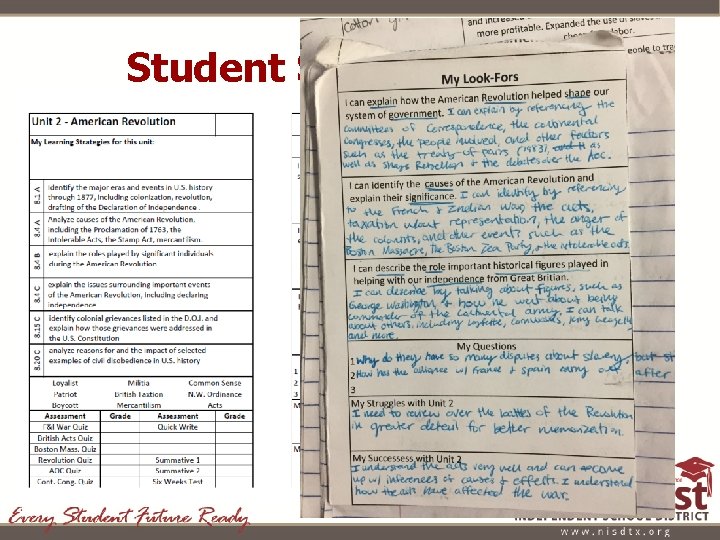 Student S
Unit 2 - American Revolution
My Learning Strategies for this unit:
8.1 A
Identify the major eras and events in U.S. history
through 1877, including colonization, revolution,
drafting of the Declaration of Independence.
8.4 A
Analyze causes of the American Revolution,
including the Proclamation of 1763, the
Intolerable Acts, the Stamp Act, mercantilism.
8.4 B
explain the roles played by significant individuals
during the American Revolution
8.4 C
explain the issues surrounding important events
of the American Revolution, including declaring
independence
8.15 C
Identify colonial grievances listed in the D.O.I. and
explain how those grievances were addressed in
the U.S. Constitution
8.20 C
analyze reasons for and the impact of selected
examples of civil disobedience in U.S. history
Loyalist Militia Common Sense
Patriot British Taxtion N.W. Ordinance
Boycott Mercantilism Acts
Assessment Grade Assessment Grade
F&I War Quiz Quick Write
British Acts Quiz
Boston Mass. Quiz
Revolution Quiz Summative 1
AOC Quiz Summative 2
Cont. Cong. Quiz Six Weeks Test
1
2
3
cotton gin
and increased
more profitable. Expanded the use of slaves
labor.
people to tra
My Look-Fors
I can explain how the American Revolution helped shape our
system of government. I can explain by referencing the
committees of correspondence, the continental
congresses, the people involved, and other factors
such as the treaty of paris (1783), as
well as Shays Rebellion + the debates over the AOC.
I can identify the causes of the American Revolution and
explain their significance. I can identify by referencing
to the French & Indian War, the acts,
taxation without representation, the anger of
the colonists, and other events such as the
Boston Massacre, The Boston Tea Party, + the intolerable acts.
I can describe the role important historical figures played in
helping with our independence from Great Britian.
I can describe by talking about figures, such as
George Washington & how he went about being
commander of the continental army. I can talk
about others, including Lafayette, Cornwallis, King George III
and more.
My Questions
1 Why do they have so many disputes about slavery,
2 How has the alliance w/ France & Spain carry over after
3
My Struggles with Unit 2
I need to review over the battles of the Revolution
in greater detail for better memorization.
My Successess with Unit 2
I understand the acts very well and can come
up w/ inferences of causes & effects. I understand
how the acts have affected the war.
Every Student Future Ready
st
INDEPENDENT SCHOOL DISTRICT
www.nisdtx.org